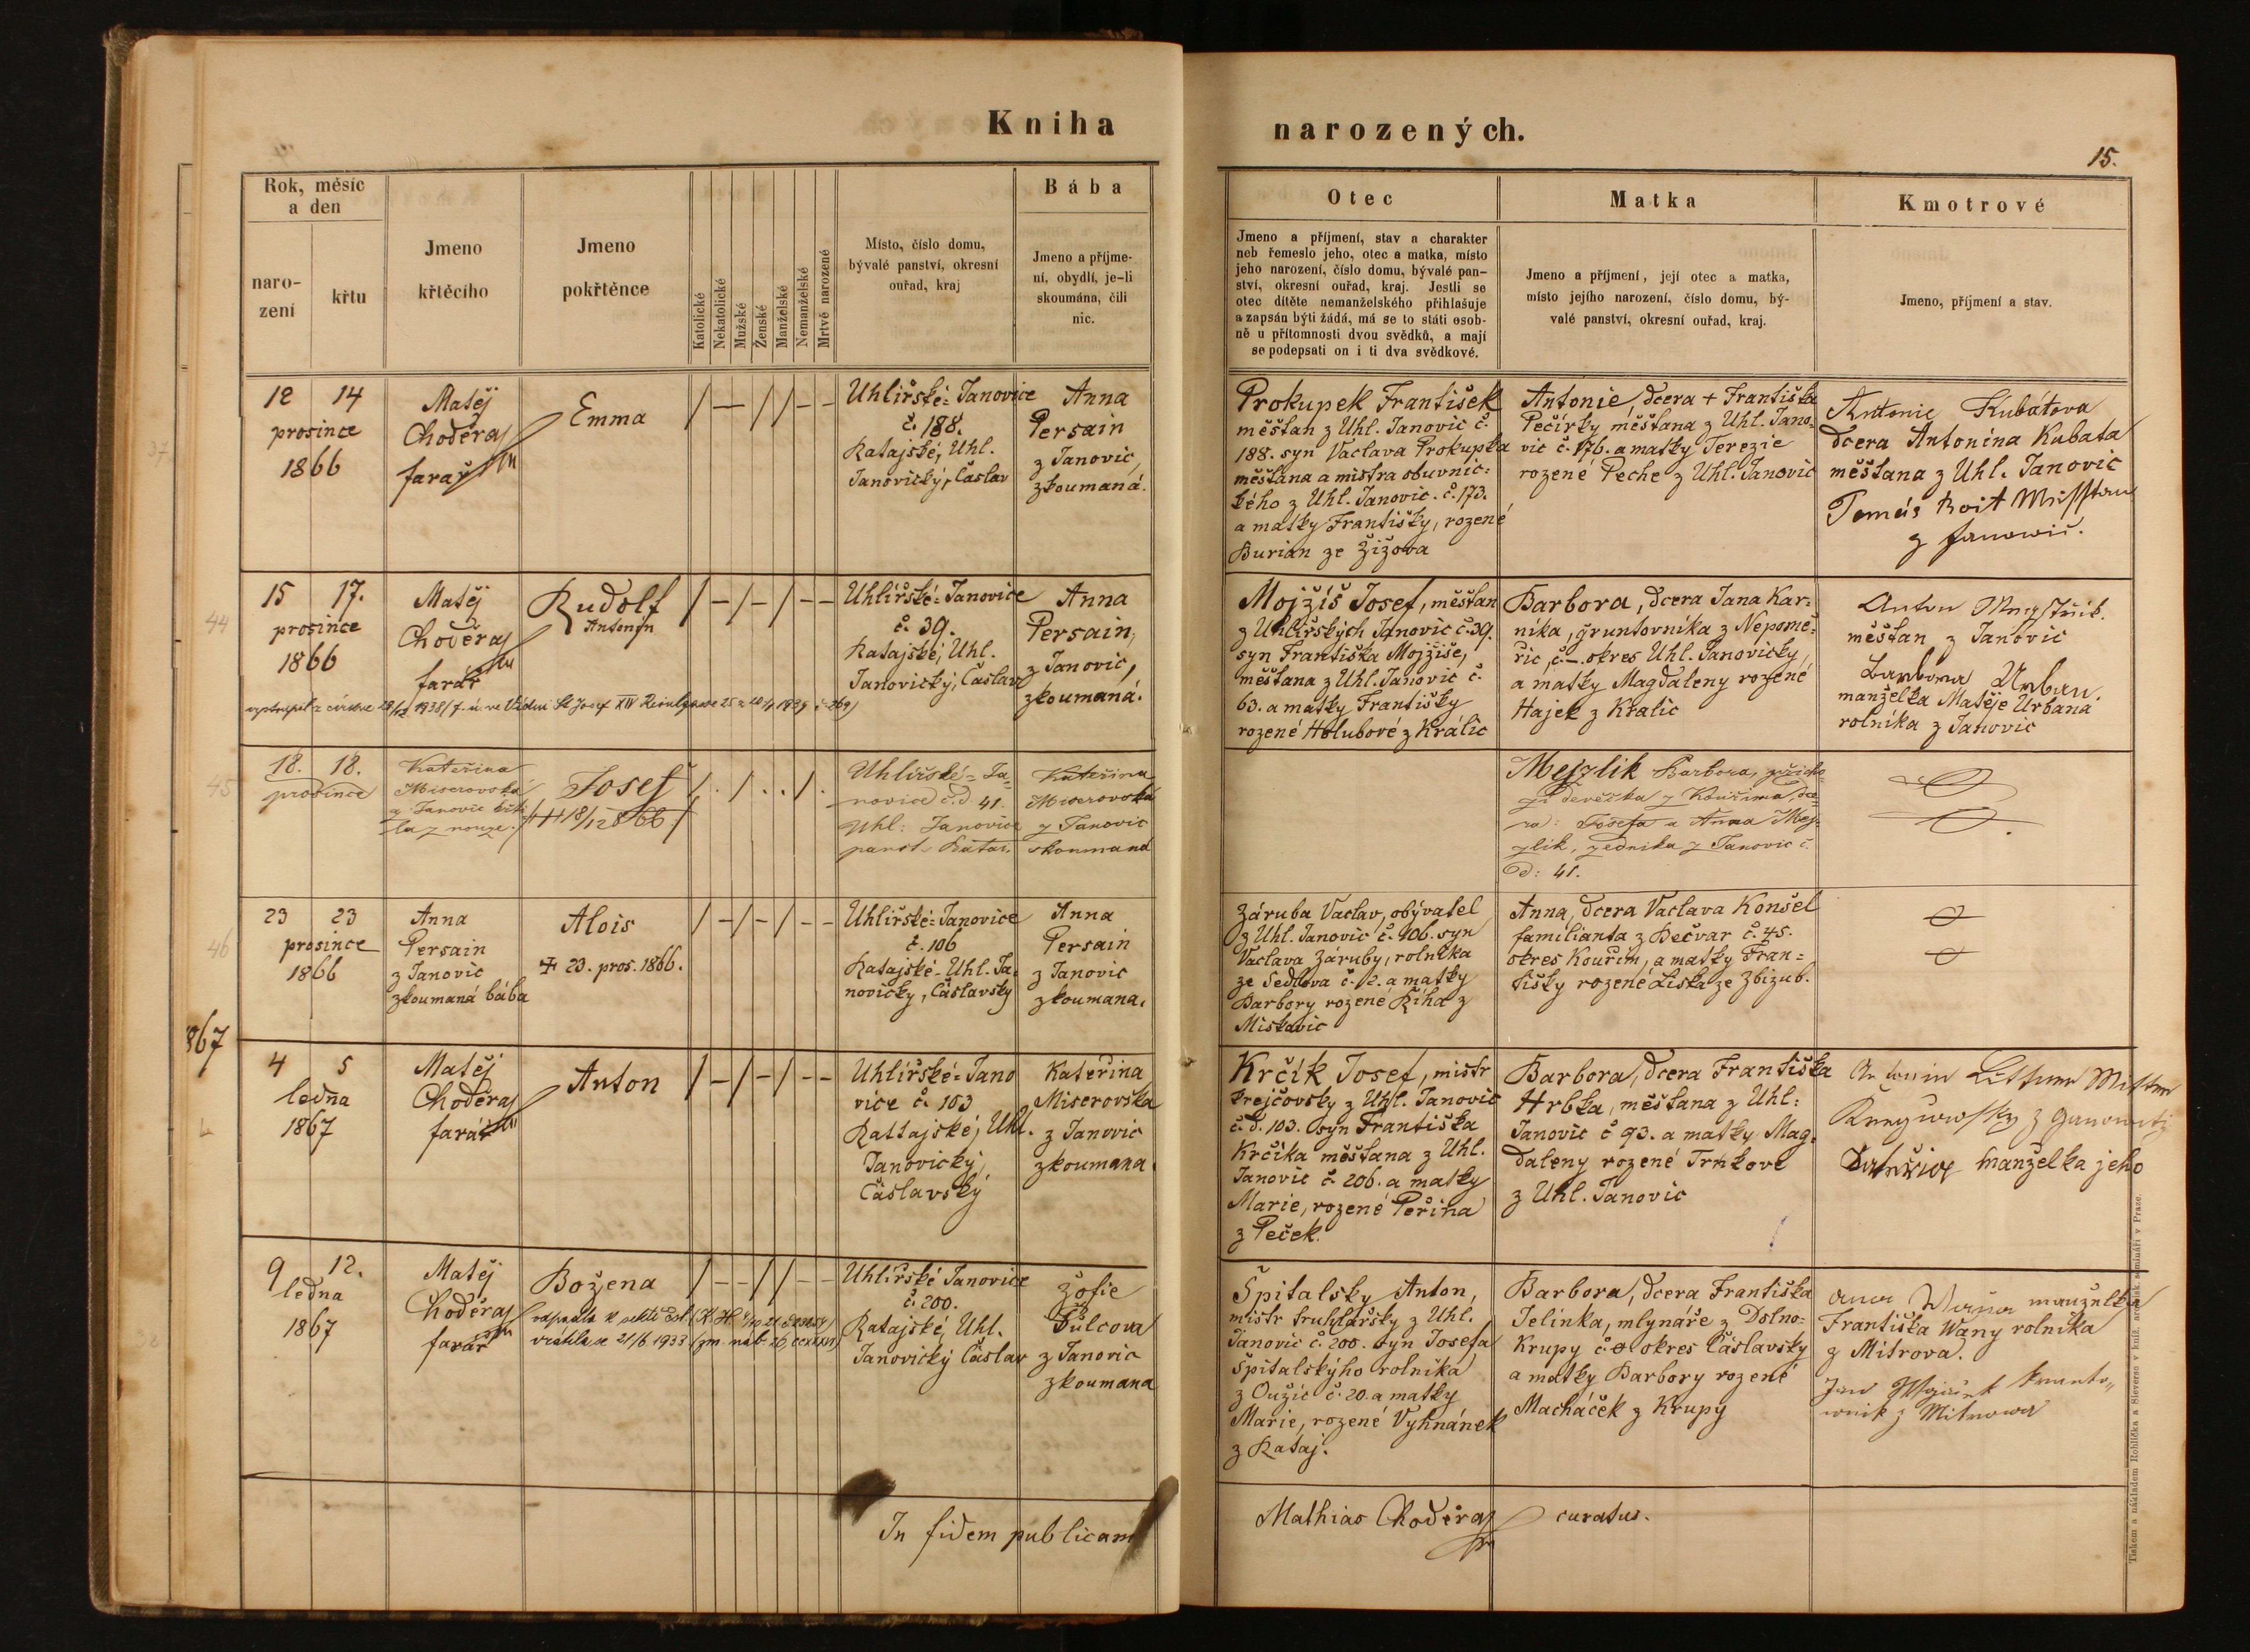 Kniha
narozených.
15.
Rok, měsíc
a den
naro-
zení
křtu
Jmeno
křtěcího
Jmeno
pokřtěnce
Katolické
Nekatolické
Mužské
Ženské
Manželské
Nemanželské
Mrtvě narozené
Místo, číslo domu,
bývalé panství, okresní
ouřad, kraj
Bába
Jmeno a příjme-
ní, obydlí, je-li
skoumána, čili
nic.
Otec
Jmeno a příjmení, stav a charakter
neb řemeslo jeho, otec a matka, místo
jeho narození, číslo domu, bývalé pan-
ství, okresní ouřad, kraj. Jestli se
otec dítěte nemanželského přihlašuje
a zapsán býti žádá, má se to státi osob-
ně u přítomnosti dvou svědků, a mají
se podepsati on i ti dva svědkové.
Matka
Jmeno a příjmení, její otec a matka,
místo jejího narození, číslo domu, bý-
valé panství, okresní ouřad, kraj.
Kmotrové
Jmeno, příjmení a stav.
37
12 14
prosince
1866
Matěj
Choděra
farář
Emma
Uhlířské=Janovice
č. 188.
Ratajské, Uhl.
Janovický, Čáslav
Anna
Persain
z Janovic,
zkoumaná.
Prokupek František
měšťan z Uhl. Janovic č.
188. syn Vaclava Prokupka
měšťana a mistra obuvnic=
kého z Uhl. Janovic. č. 173.
a matky Františky, rozené
Burian ze Žižova
Antonie, dcera + Františka
Pečírky měšťana z Uhl. Jano=
vic č. 176. a matky Terezie
rozené Peche z Uhl. Janovic
Antonie Kubátova
dcera Antonína Kubata
měšťana z Uhl. Janovic
Tomáš
z Janowic.
44
15 17.
prosince
1866
Matěj
Choděra
farář
Rudolf
Antonín
vystoupil z církve 1938
Uhlířské=Janovice
č. 39.
Ratajské, Uhl.
Janovický, Čáslav
Anna
Persain,
z Janovic,
zkoumaná.
Mojžíš Josef, měšťan
z Uhlířských Janovic č. 39.
syn Františka Mojžíše,
měšťana z Uhl. Janovic č.
63. a matky Františky
rozené Holubové z Králic
Barbora, dcera Jana Kar=
níka, gruntovníka z Nepomě=
řic, č. –. okres Uhl. Janovický,
a matky Magdaleny rozené
Hajek z Kralic
Anton
měšťan z Janovic
Barbora Urban.
manželka Matěje Urbana
rolníka z Janovic
45
18. 18.
prosince
Kateřina
Miserovská
z Janovic křti
la z nouze.
Josef
18/12 866
Uhlířské=Ja=
novice č.d. 41.
Uhl: Janovice
panst. Rataj.
Kateřina
Miserovská
z Janovic
skoumaná
Mejzlik Barbora,
děvečka z Kouřima, dce=
ra: Josefa a Anna Mej=
zlik, zedníka z Janovic č.
d: 41.
46
23 23
prosince
1866
Anna
Persain
z Janovic
zkoumaná bába
Alois
23. pros. 1866.
Uhlířské=Janovice
č. 106
Ratajské-Uhl. Ja=
novický, Čáslavský
Anna
Persain
z Janovic
zkoumana.
Záruba Vaclav, obývatel
z Uhl. Janovic č. 106. syn
Vaclava Záruby, rolníka
ze Sedlova č. 12. a matky
Barbory rozené Říha z
Miskovic
Anna, dcera Vaclava Konšel
familianta z Bečvar č. 45.
okres Kouřim, a matky Fran=
tišky rozené Liska ze Zbizub.
1867
4 5
ledna
1867
Matěj
Choděra
farář
Anton
Uhlířské=Jano
vice č. 103
Rattajské, Uhl.
Janovický,
Čáslavský
Kateřina
Miserovska
z Janovic
zkoumana.
Krčík Josef, mistr
krejčovsky z Uhl. Janovic
č.d. 103. syn Františka
Krčíka měšťana z Uhl.
Janovic č. 206. a matky
Marie, rozené Peřina
z Peček.
Barbora, dcera Františka
Hrbka, měšťana z Uhl:
Janovic č 93. a matky Mag=
daleny rozené Trnkové
z Uhl. Janovic
manželka jeho
9 12.
ledna
1867
Matěj
Choděra
farář
Božena
vrátila se 21/6 1933
Uhlířské Janovice
č. 200.
Ratajské, Uhl.
Janovický Čáslav
Žofie
Šulcova
z Janovic
zkoumana
Špitalsky Anton,
mistr truhlářsky z Uhl.
Janovic č. 200. syn Josefa
Špitalskýho rolníka
z Oužic č. 20. a matky
Marie, rozené Vyhnánek
z Rataj.
Barbora, dcera Františka
Jelínka, mlynáře z Dolno=
Krupy č. 0 okres Čáslavsky
a matky Barbory rozené
Macháček z Krupy
manželka
Františka Wany rolníka
z Mitrova.
z Mitrowa
In fidem publicam
Mathias Choděra curatus.
Tiskem a nákladem Rohlíčka a Sieverse v kníž. arcibisk. semináři v Praze.